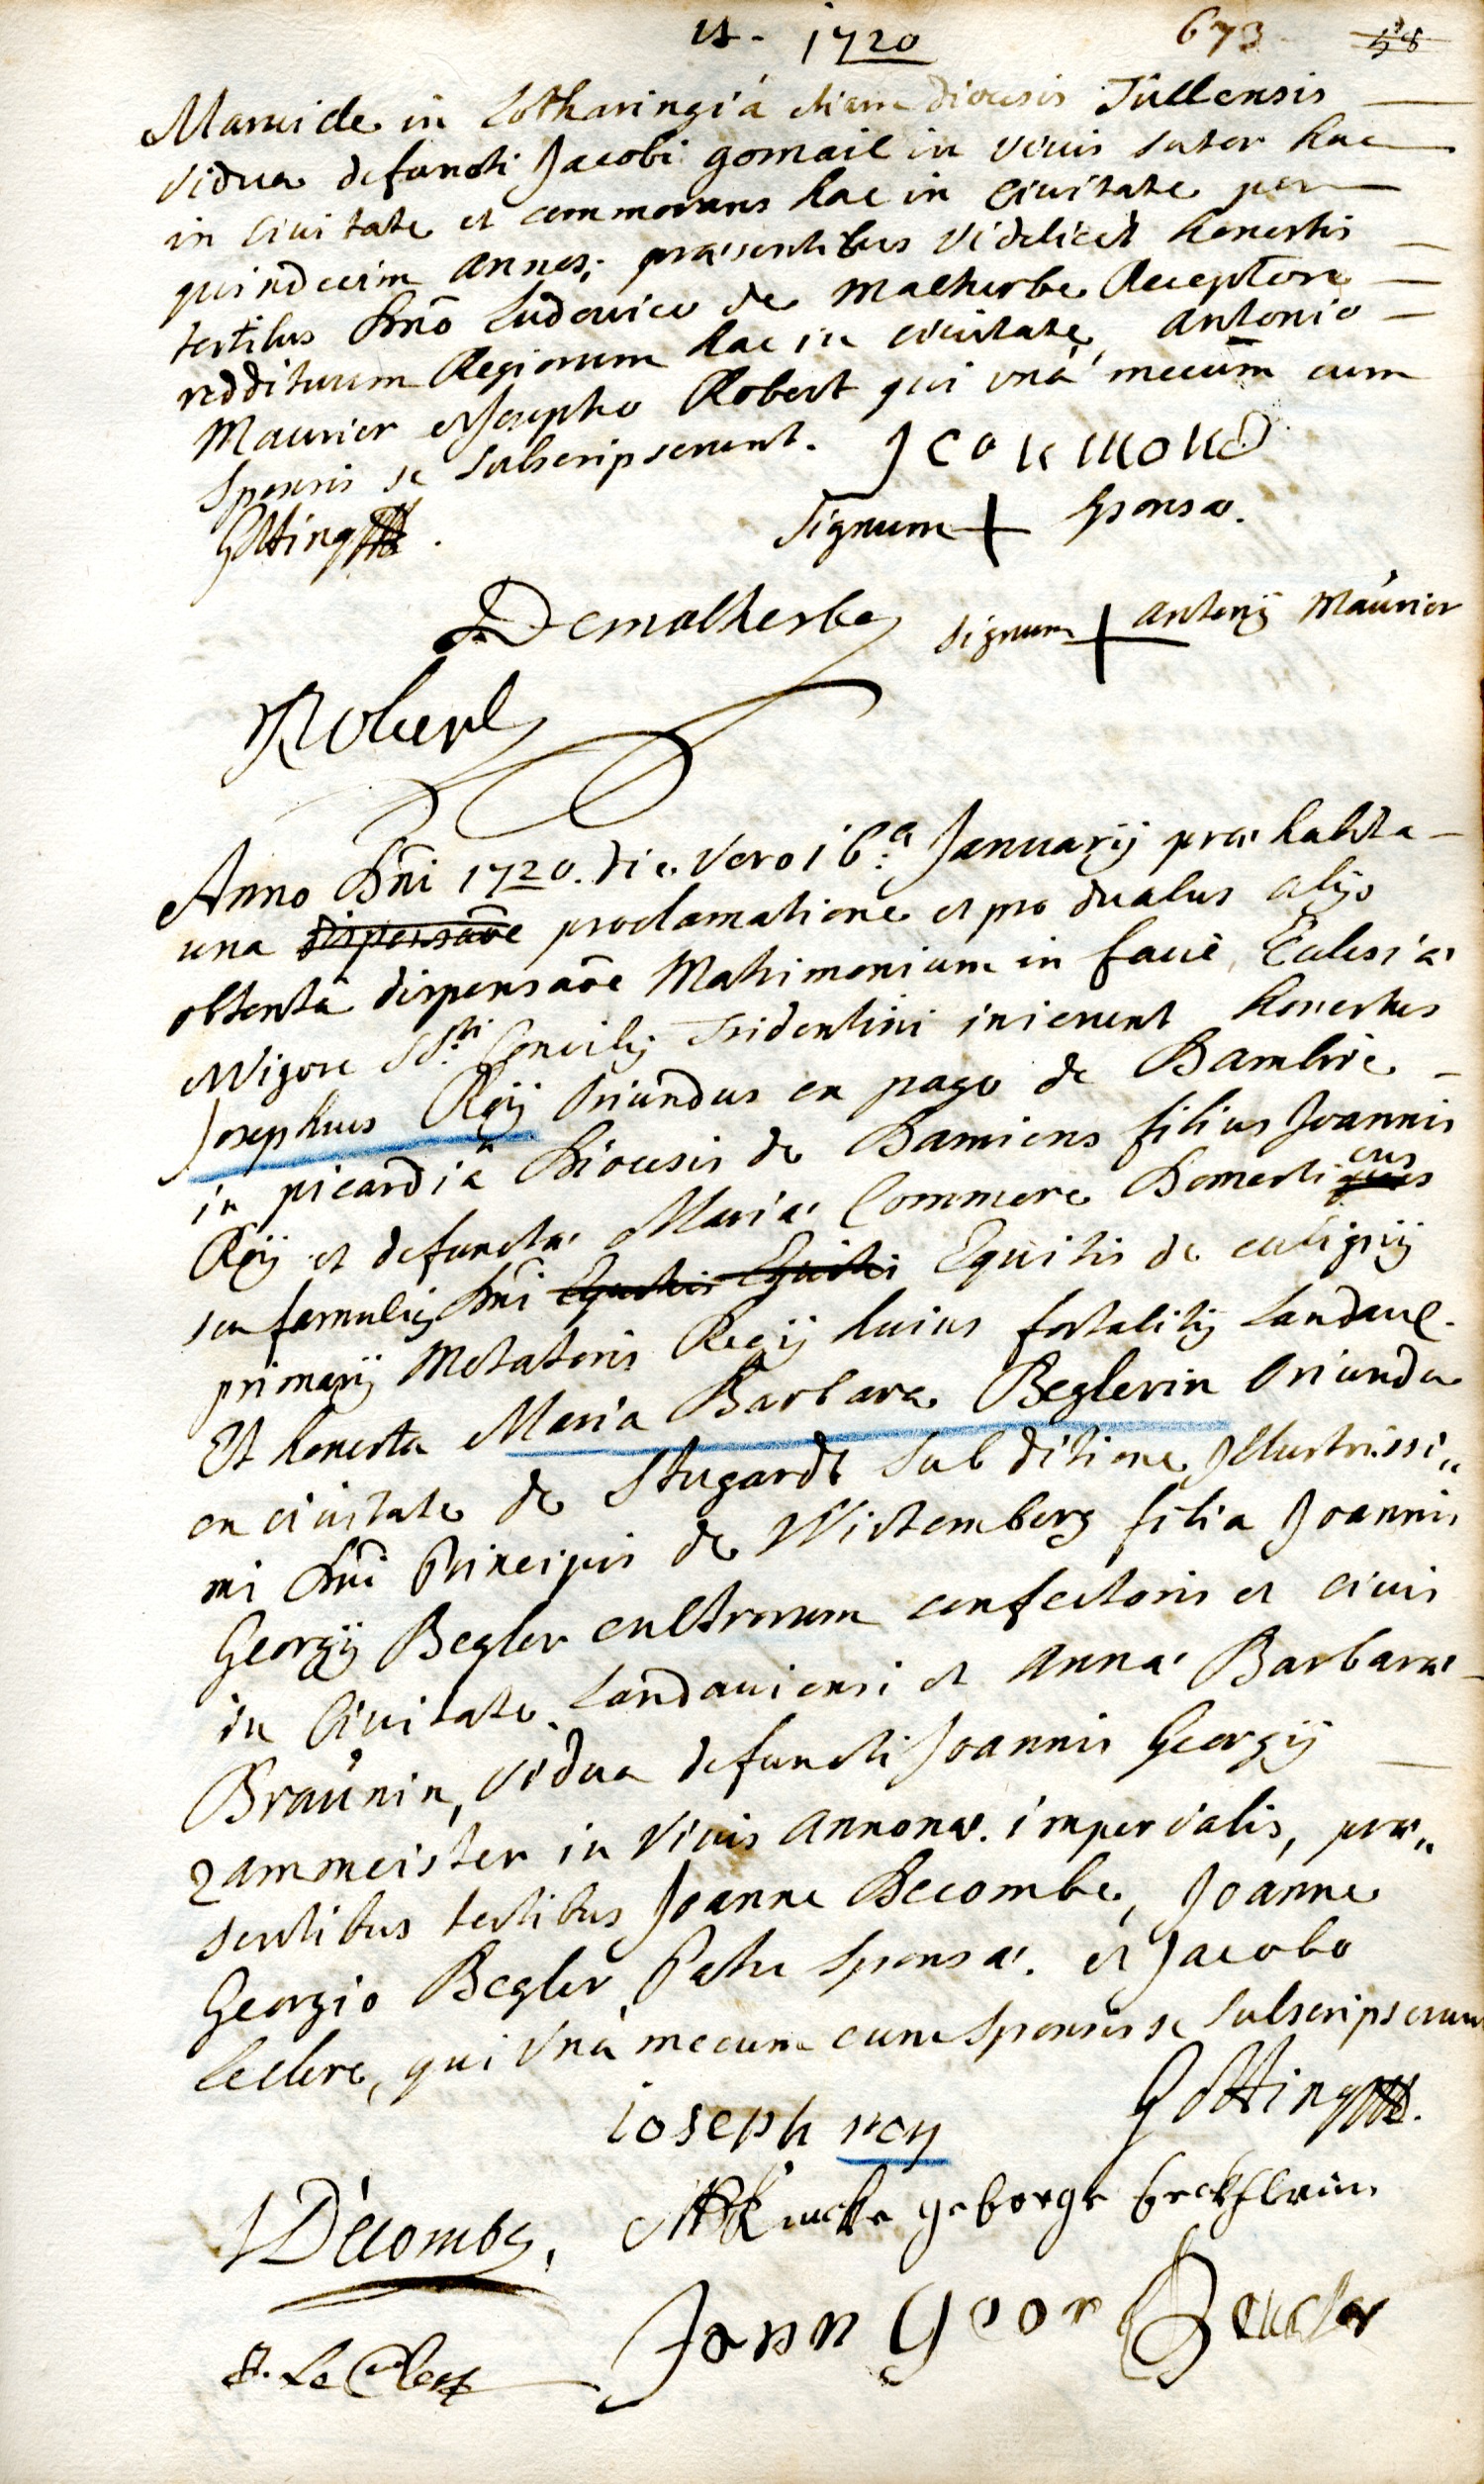 1720 673 58
Maruide in Lotharingiâ etiam diocesis Tullensis
vidua defuncti Jacobi gomail in vivis sutor hac
in Civitate et commorans hac in Civitate per
quindecim annos; præsentibus videlicet honestis
testibus Dn̄o Ludovico de Malherbe Receptore
reddituum Regiorum hac in civitate, antonio
Maurier et Josepho Robert qui unà mecum cum
Sponsis se subscripserunt.
Signum + Sponsæ.
Gotting
Demalherbe
signum + antonij Maurier
Robert
Anno Dn̄i 1720. die vero 16.a Januarij præhabita
una dispensaōe proclamatione et pro duabus alijs
obtentâ dispensaōe Matrimonium in facie Ecclesiæ
Vigore SSti Concilij Tridentini inierunt honestus
Josephus Roij Oriundus ex pago de Bambrie
in picardiâ Diocesis de Damiens filius Joannis
Roij et defunctæ Mariæ Commere Domesticus
seu famulus Dn̄i Equitis de Colignij
primarij Metatoris Regij huius fortalitij Landavl.
Et honesta Maria Barbara Beglerin Oriunda
ex civitate de Stugardt sub ditione Illustrissi„
mi Dn̄i Principis de Wirtemberg filia Joannis
Georgij Begler cultrorum confectoris et civis
in Civitate Landaviensi et Annæ Barbaræ
Braunin, vidua defuncti Joannis Georgij
Zammeister in vivis annonæ imperialis, præ„
sentibus testibus Joanne Decombe, Joanne
Georgio Begler Patre Sponsæ. et Jacobo
leclere, qui unà mecum cum Sponsis se subscripserunt
Gotting
ioseph roy
Décombe,
geborge
Jonn Geor Beucler
J. Le Clerc